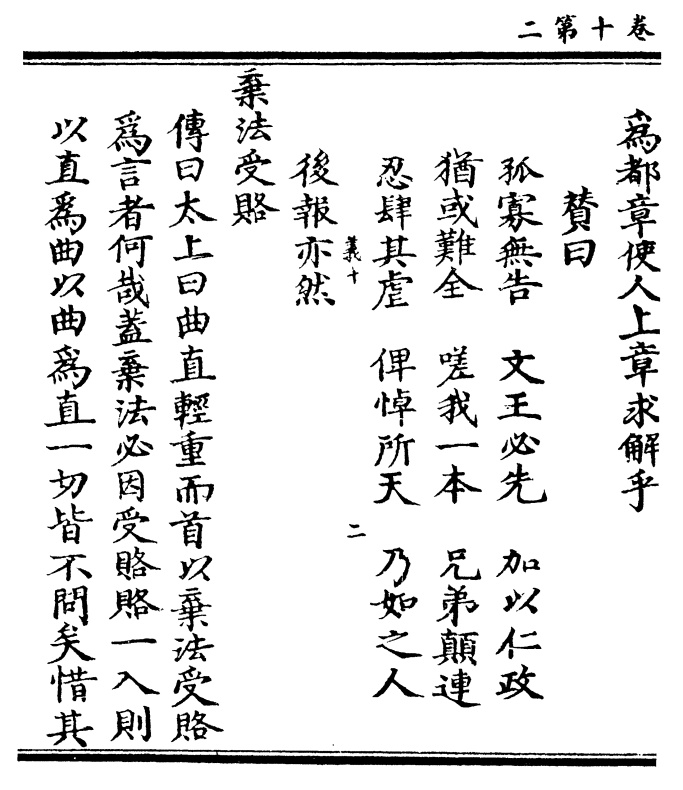 卷十第二
為都章使人上章求解乎
贊曰
孤寡無告 文王必先 加以仁政
猶或難全 嗟我一本 兄弟顛連
忍肆其虐 俾悼所天 乃如之人
後報亦然
義十
二
棄法受賂
傳曰太上曰曲直輕重而首以棄法受賂
為言者何哉蓋棄法必因受賂賂一入則
以直爲曲以曲爲直一切皆不問矣惜其